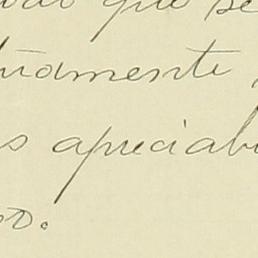 que se
damente
s apreciab
so.